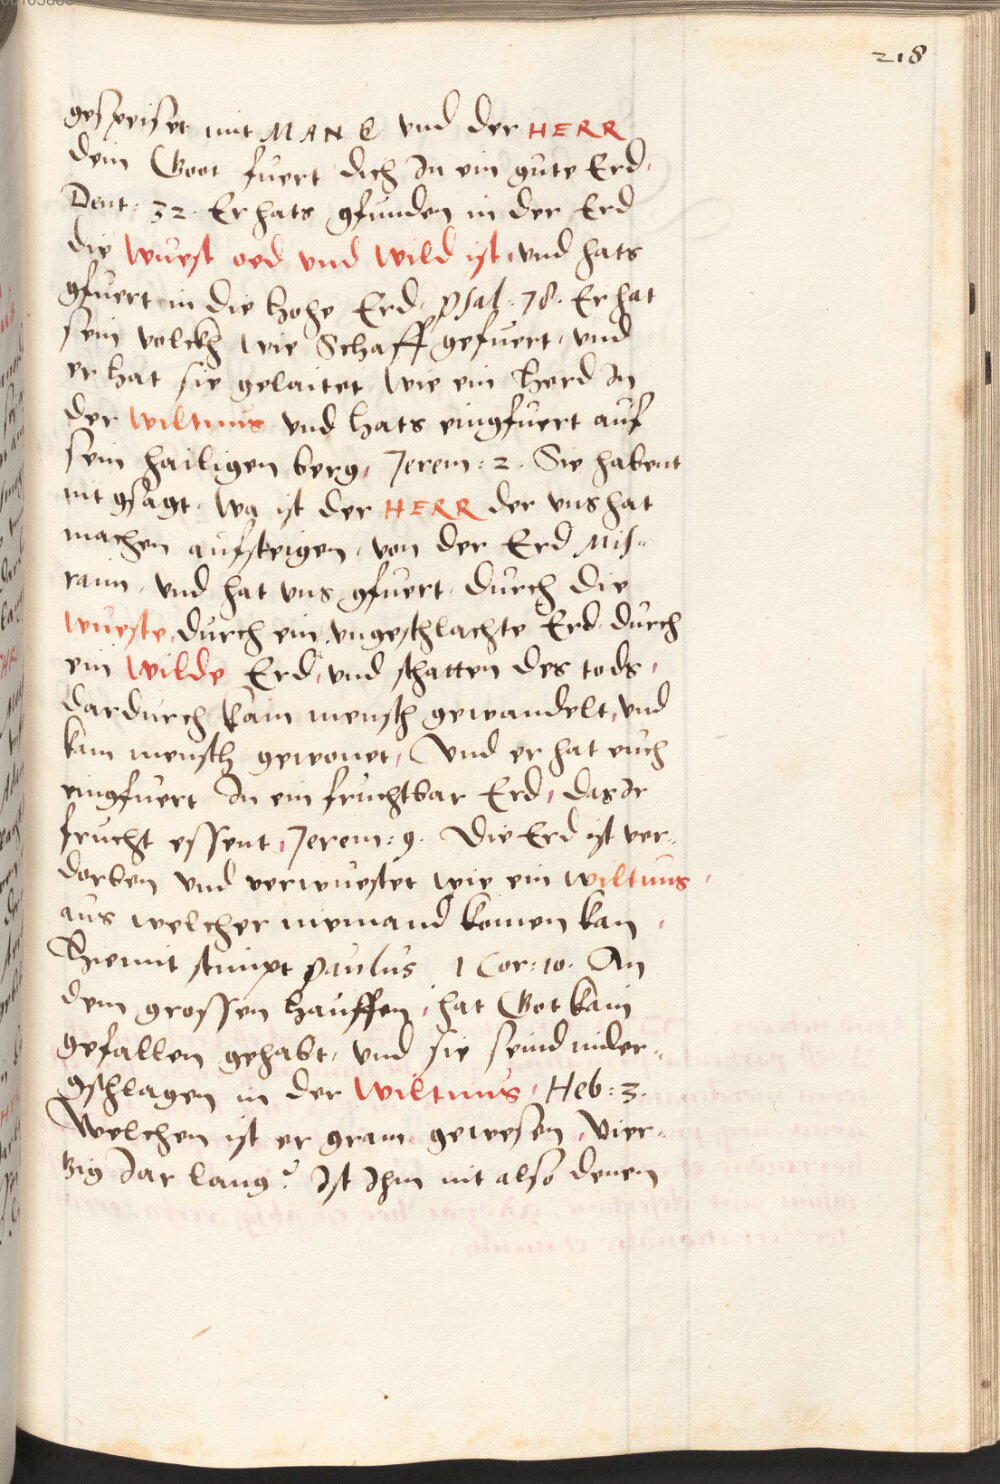 218
gespeiset mit MAN E vnd der HERR
dein Goot fuert dich In ein gute Erd.
Deut: 32. Er hats gfunden in der Erd
die wuest oed vnd wild ist, vnd hats
gfuert in die hohe Erd. Psal: 78. Er hat
sein volckh wie Schaff gefuert, vnd
er hat sie gelaitet wie ein Herd In
der wiltnus vnd hats eingfuert auf
sein hailigen berg, Jerem: 2. Sie habent
nit gsagt. wa ist der HERR der vns hat
machen aufsteigen, von der Erd Mis-
raim, vnd hat vns gfuert, durch die
wueste, durch ein vngeschlachte Erd durch
ein wilde Erd, vnd schatten des tods,
dardurch kain mensch gewandelt, vnd
kain mensch gewonet, Vnd er hat euch
eingfuert In ein fruchtbar Erd, das Ir
frucht essent, Jerem: 9. Die Erd ist ver-
dorben vnd verwuestet wie ein wiltnus,
aus welcher niemand komen kan,
Hiemit stimpt Paulus 1 Cor: 10. An
dem grossen hauffen, hat Got kain
gefallen gehabt, vnd sie seind nider-
gschlagen in der wiltnus, Heb: 3.
Welchen ist er gram gewesen, Vier-
tzig Jar lang? Ist Ihm nit also denen